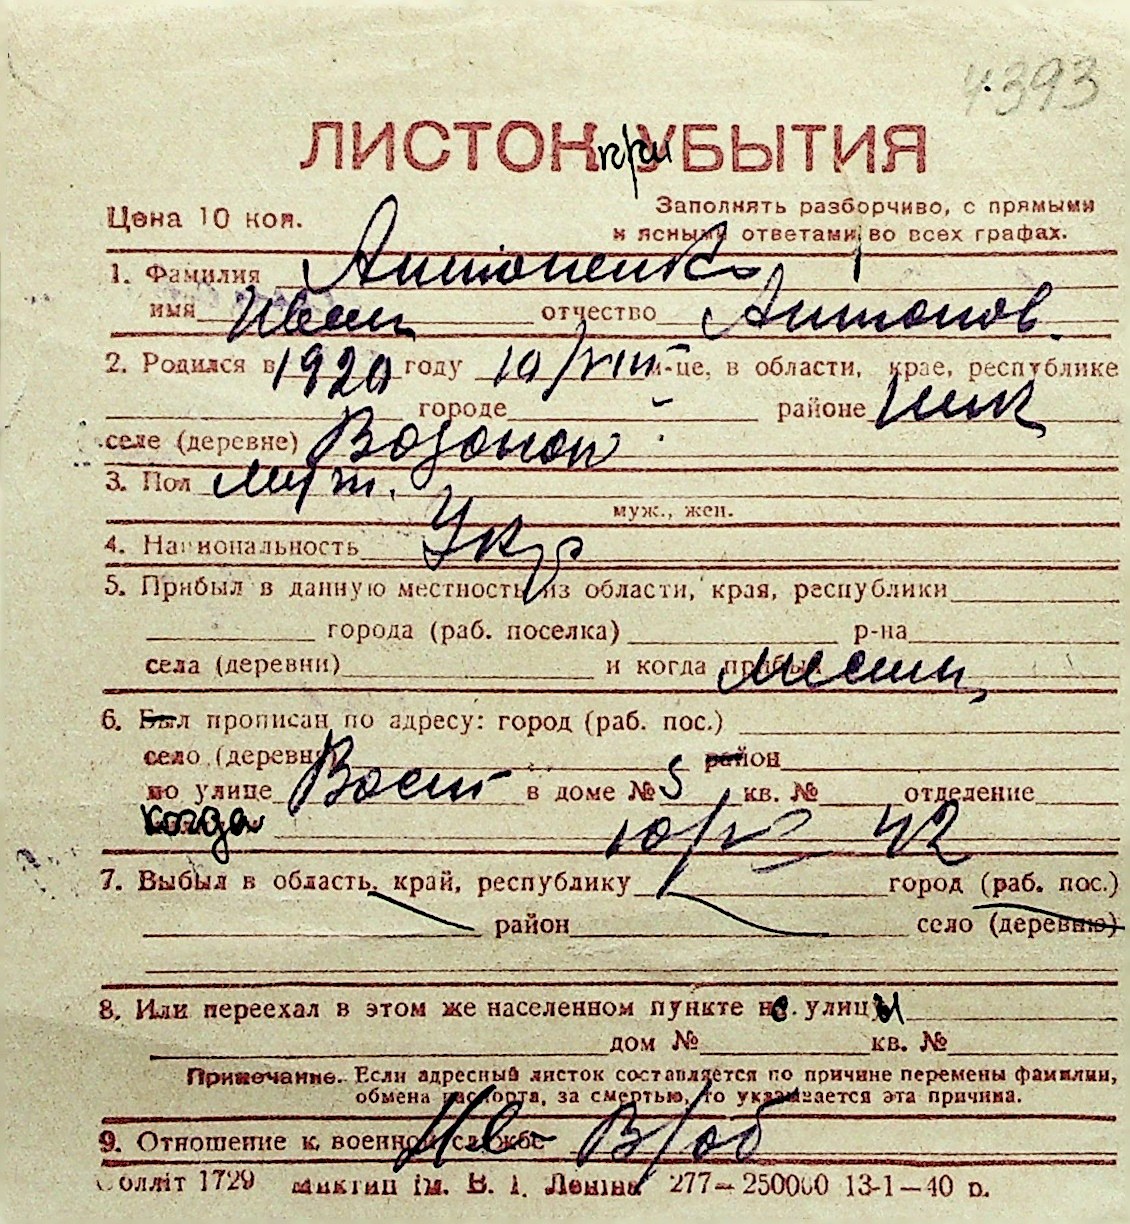 4393
ЛИСТОК при УБЫТИЯ
Цена 10 коп.
Заполнять разборчиво, с прямыми
и ясными ответами во всех графах.
1. Фамилия Антоненко
имя Иван отчество Антонов.
2. Родился в 1920 году 10/VIII м-це, в области, крае, республике
городе районе Ник
селе (деревне)
3. Пол муж.
муж., жен.
4. Национальность Укр
5. Прибыл в данную местность из области, края, республики
города (раб. поселка) р-на
села (деревни) и когда прибыл местн
6. Был прописан по адресу: город (раб. пос.)
село (деревня) район
по улице Вост в доме № 5 кв. № отделение
когда 42
7. Выбыл в область, край, республику город (раб. пос.)
район село (деревню)
8. Или переехал в этом же населенном пункте с улицы
дом № кв. №
Примечание. Если адресный листок составляется по причине перемены фамилии,
обмена паспорта, за смертью, то указывается эта причина.
9. Отношение к военной службе Не В/об
Соллiт 1729 iм. В. I. Ленiна 277—250000 13-1—40 р.